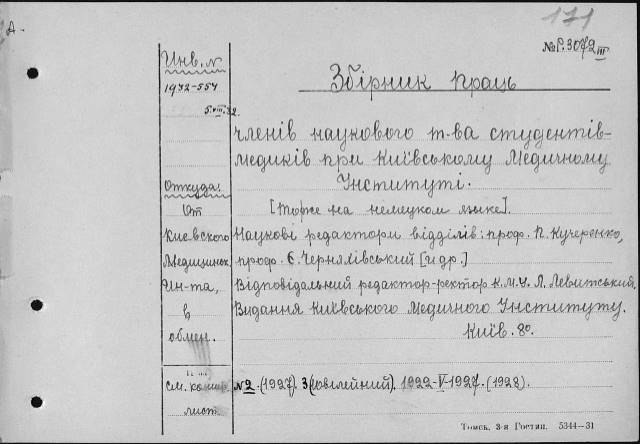 А.
171
№Р.3072 III
Инв. №
1932-554
5.VIII.32.
Збірник праць
членів наукового т-ва студентів-
медиків при Київському Медичному
Інституті.
[тоже на немецком языке].
Наукові редактори відділів: проф. П. Кучеренко,
проф. Є. Чернялівський [и др.]
Відповідальний редактор-ректор К.М.І. Л. Левитський.
Видання Київського Медичного Інституту.
Київ. 8о.
Откуда:
От
Киевского
Медицинск
Ин-та,
в
обмен.
см. комир.
лист.
№2.(1927). 3(ювілейний). 1922-V-1927.(1928).
Томск. 3-я Гостип. 5344—31